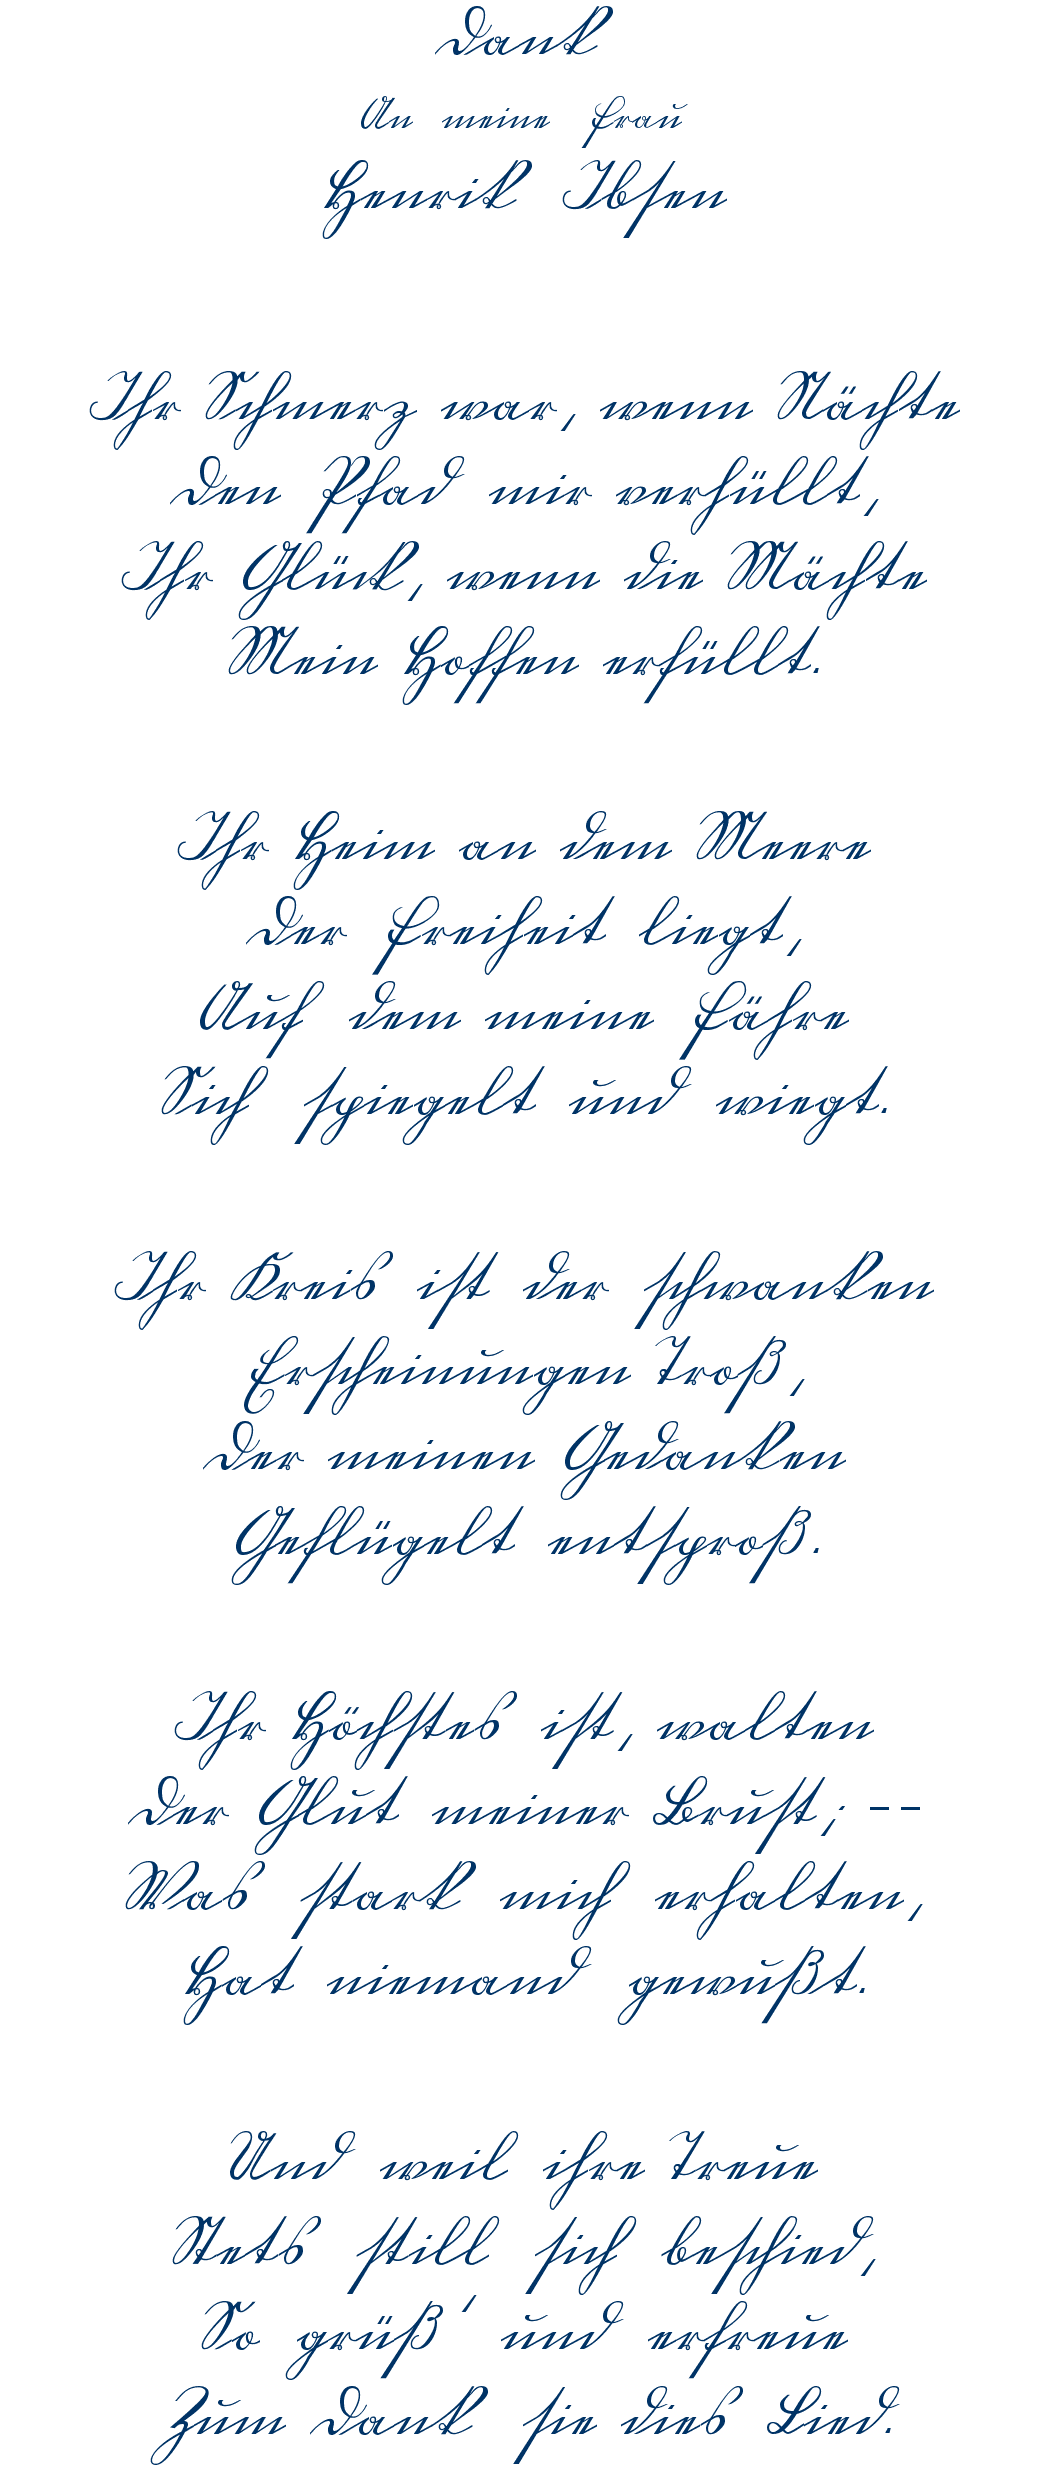 Dank
An meine Frau
Henrik Ibsen
Ihr Schmerz war, wenn Nächte
Den Pfad mir verhüllt,
Ihr Glück, wenn die Mächte
Mein Hoffen erfüllt.
Ihr Heim an dem Meere
Der Freiheit liegt,
Auf dem meine Fähre
Sich spiegelt und wiegt.
Ihr Kreis ist der schwanken
Erscheinungen Troß,
Der meinen Gedanken
Geflügelt entsproß.
Ihr Höchstes ist, walten
Der Glut meiner Brust; --
Was stark mich erhalten,
Hat niemand gewußt.
Und weil ihre Treue
Stets still sich beschied,
So grüß' und erfreue
Zum Dank sie dies Lied.